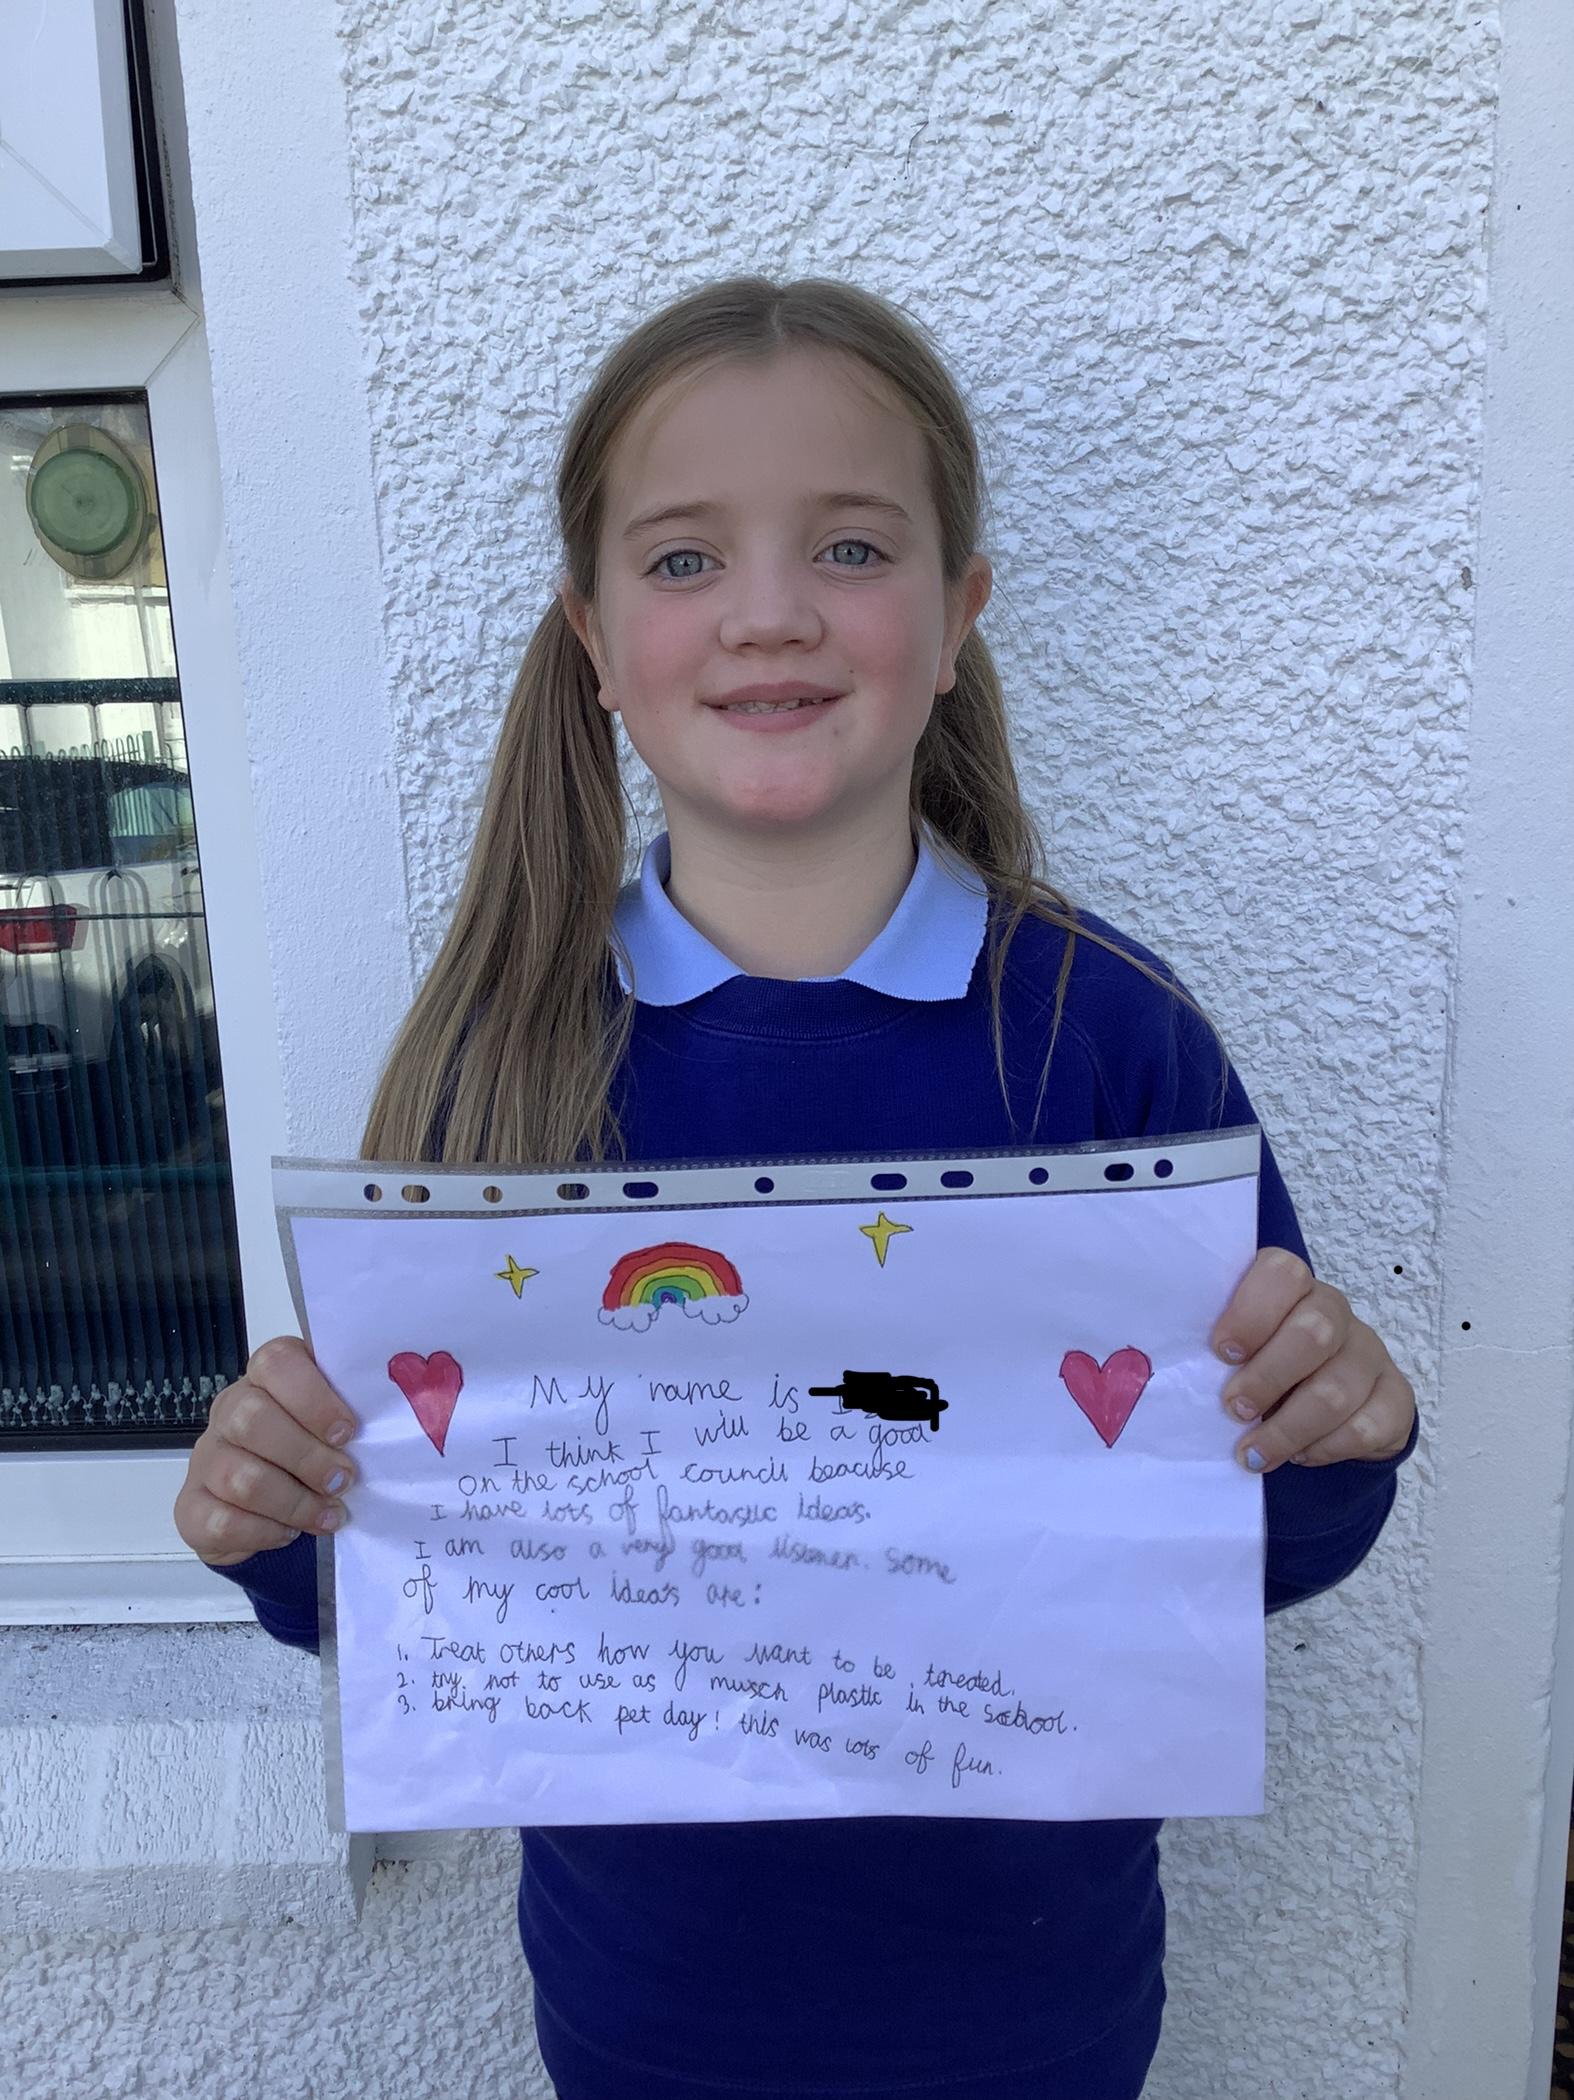 My name is
I think I will be a good
on the school council beacuse
I have lots of fantastic ideas.
I am also a very good listener. Some
of my cool idea's are:
1. Treat others how you want to be tereated.
2. try not to use as musch plastic in the school.
3. bring back pet day! this was lots of fun.